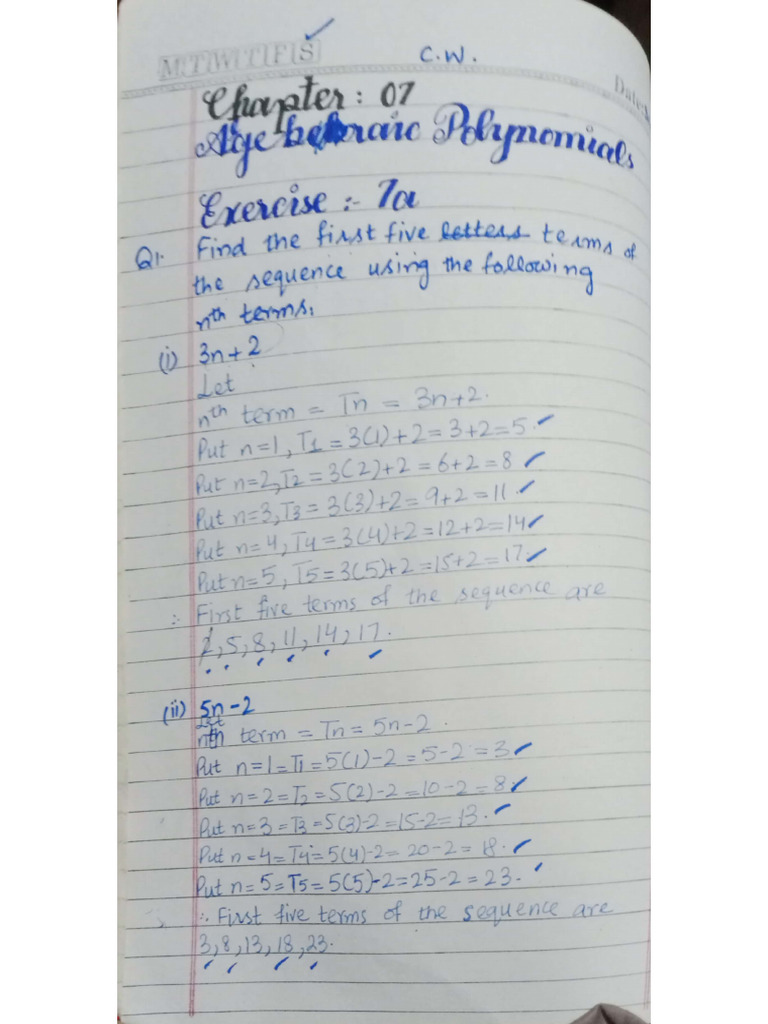 M T W T F S
C.W.
Date:
Chapter : 07
Algebraic Polynomials
Exercise :- 7a
Q1. Find the first five letters terms of
the sequence using the following
nth terms.
(i) 3n+2
Let
nth term = Tn = 3n+2.
Put n=1, T1 = 3(1)+2 = 3+2 = 5
Put n=2, T2 = 3(2)+2 = 6+2 = 8
Put n=3, T3 = 3(3)+2 = 9+2 = 11
Put n=4, T4 = 3(4)+2 = 12+2 = 14
Put n=5, T5 = 3(5)+2 = 15+2 = 17
∴ First five terms of the sequence are
5, 8, 11, 14, 17.
(ii) 5n-2
Let
nth term = Tn = 5n-2.
Put n=1=T1=5(1)-2=5-2=3
Put n=2=T2=5(2)-2=10-2=8
Put n=3=T3=5(3)-2=15-2=13.
Put n=4=T4=5(4)-2=20-2=18.
Put n=5=T5=5(5)-2=25-2=23.
∴ First five terms of the sequence are
3, 8, 13, 18, 23.